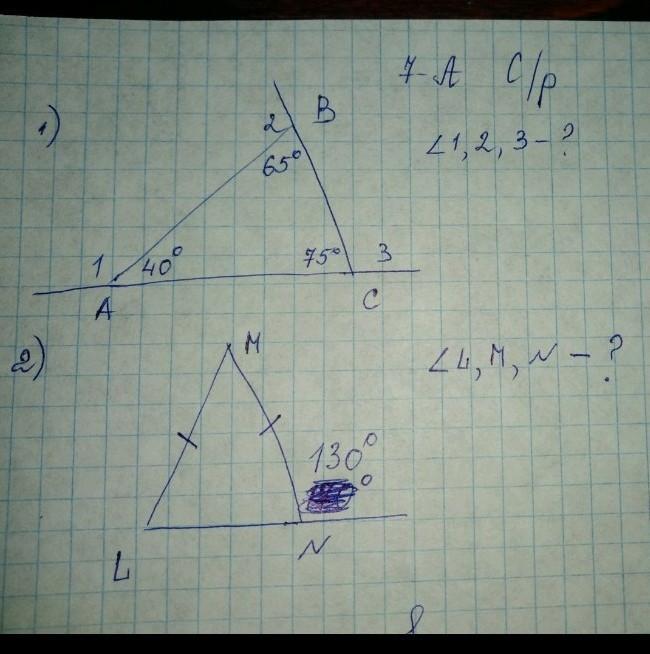 7-А С/р
1)
2 B
65°
∠1, 2, 3 - ?
1 40° 75° 3
A C
2)
M
∠L, M, N - ?
130°
°
L N